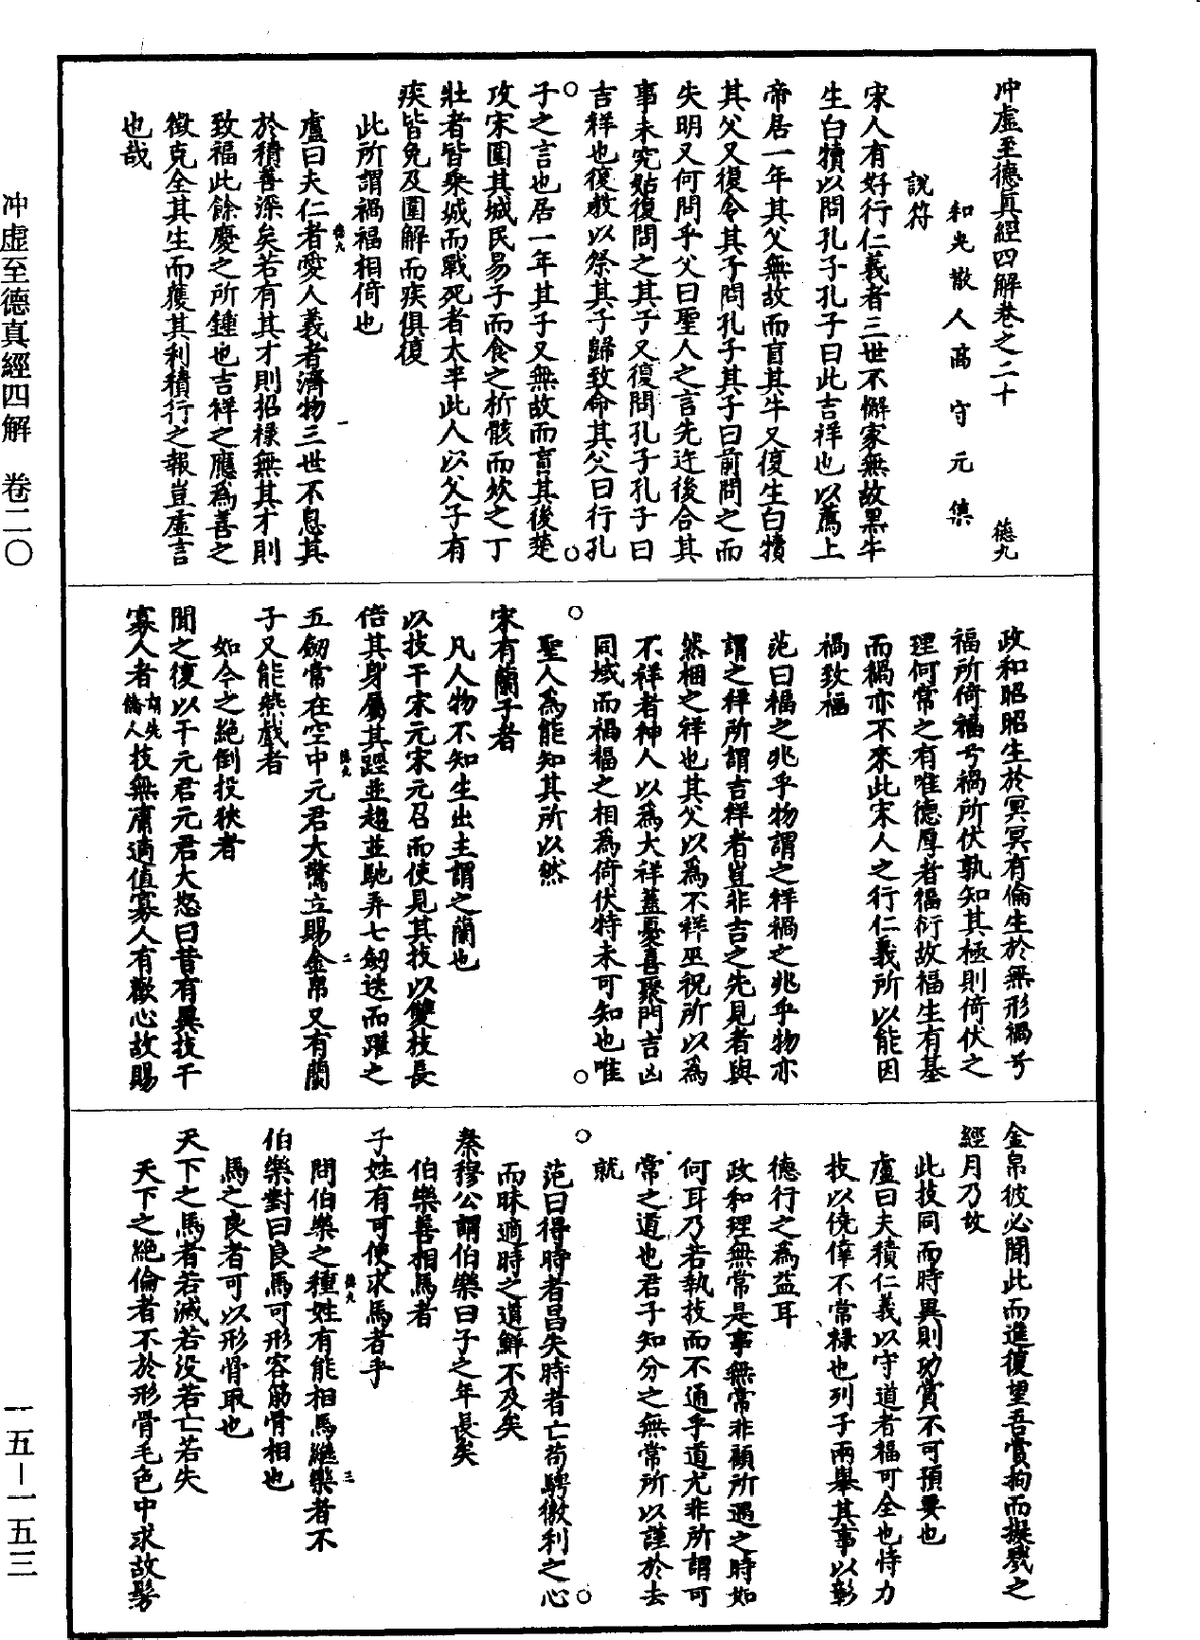 冲虛至德真經四解卷之二十　德九
和光散人高守元集
說符
宋人有好行仁義者三世不懈家無故黑牛
生白犢以問孔子孔子曰此吉祥也以薦上
帝居一年其父無故而盲其牛又復生白犢
其父又復令其子問孔子其子曰前問之而
失明又何問乎父曰聖人之言先迕後合其
事未究姑復問之其子又復問孔子孔子曰
吉祥也復教以祭其子歸致命其父曰行孔
子之言也居一年其子又無故而盲其後楚
攻宋圍其城民易子而食之析骸而炊之丁
壯者皆乘城而戰死者太半此人以父子有
疾皆免及圍解而疾俱復
此所謂禍福相倚也
盧曰夫仁者愛人義者濟物三世不息其
於積善深矣若有其才則招祿無其才則
致福此餘慶之所鍾也吉祥之應為善之
徵克全其生而獲其利積行之報豈虛言
也哉
政和昭昭生於冥冥有倫生於無形禍兮
福所倚福兮禍所伏孰知其極則倚伏之
理何常之有唯德厚者福衍故福生有基
而禍亦不來此宋人之行仁義所以能因
禍致福
范曰福之兆乎物謂之祥禍之兆乎物亦
謂之祥所謂吉祥者豈非吉之先見者與
然梱之祥也其父以為不祥巫祝所以為
不祥者神人以為大祥蓋憂喜聚門吉凶
同域而禍福之相為倚伏特未可知也唯
聖人為能知其所以然
宋有蘭子者
凡人物不知生出主謂之蘭也
以技干宋元宋元召而使見其技以雙枝長
倍其身屬其踁並趨並馳弄七劒迭而躍之
五劒常在空中元君大驚立賜金帛又有蘭
子又能燕戲者
如今之絕倒投狹者
聞之復以干元君元君大怒曰昔有異技干
寡人者謂先僑人技無庸適值寡人有歡心故賜
金帛彼必聞此而進復望吾賞拘而擬戮之
經月乃放
此技同而時異則功賞不可預要也
盧曰夫積仁義以守道者福可全也恃力
技以僥倖不常祿也列子兩舉其事以彰
德行之為益耳
政和理無常是事無常非顧所遇之時如
何耳乃若執技而不通乎道尤非所謂可
常之道也君子知分之無常所以謹於去
就
范曰得時者昌失時者亡苟騁徼利之心
而昧適時之道鮮不及矣
秦穆公謂伯樂曰子之年長矣
伯樂善相馬者
子姓有可使求馬者乎
問伯樂之種姓有能相馬繼樂者不
伯樂對曰良馬可形容筋骨相也
馬之良者可以形骨取也
天下之馬者若滅若沒若亡若失
天下之絕倫者不於形骨毛色中求故髣
德九　一
德九　二
德九　三
冲虛至德真經四解　卷二〇
一五—一五三